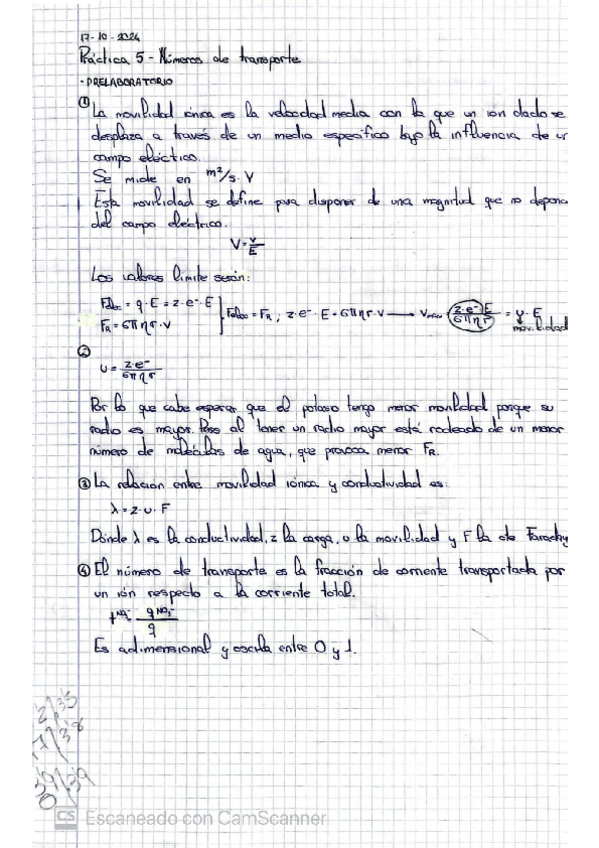 17-10-2024
Práctica 5 - Números de transporte
- PRELABORATORIO
① La movilidad iónica es la velocidad media con la que un ión dado se
desplaza a través de un medio específico bajo la influencia de un
campo eléctrico.
Se mide en m²/s·V
Esta movilidad se define para disponer de una magnitud que no depend
del campo eléctrico.
V = v/E
Los valores límite serán:
Felec = q·E = z·e⁻·E
FR = 6πηr·V
Felec = FR ; z·e⁻·E = 6πηr·V → Vmáx = z·e⁻E/6πηr = u·E
movilidad
②
u = z·e⁻/6πηr
Por lo que cabe esperar que el potasio tenga menor movilidad porque su
radio es mayor. Pero al tener un radio mayor está rodeado de un menor
número de moléculas de agua, que provoca menor FR.
③ La relación entre movilidad iónica y conductividad es:
λ = z·u·F
Donde λ es la conductividad, z la carga, u la movilidad y F la cte Faraday
④ El número de transporte es la fracción de corriente transportada por
un ión respecto a la corriente total.
t NO₃⁻ = q NO₃⁻/q
Es adimensional y oscila entre 0 y 1.
2/35
17/38
39/39
0
CS Escaneado con CamScanner